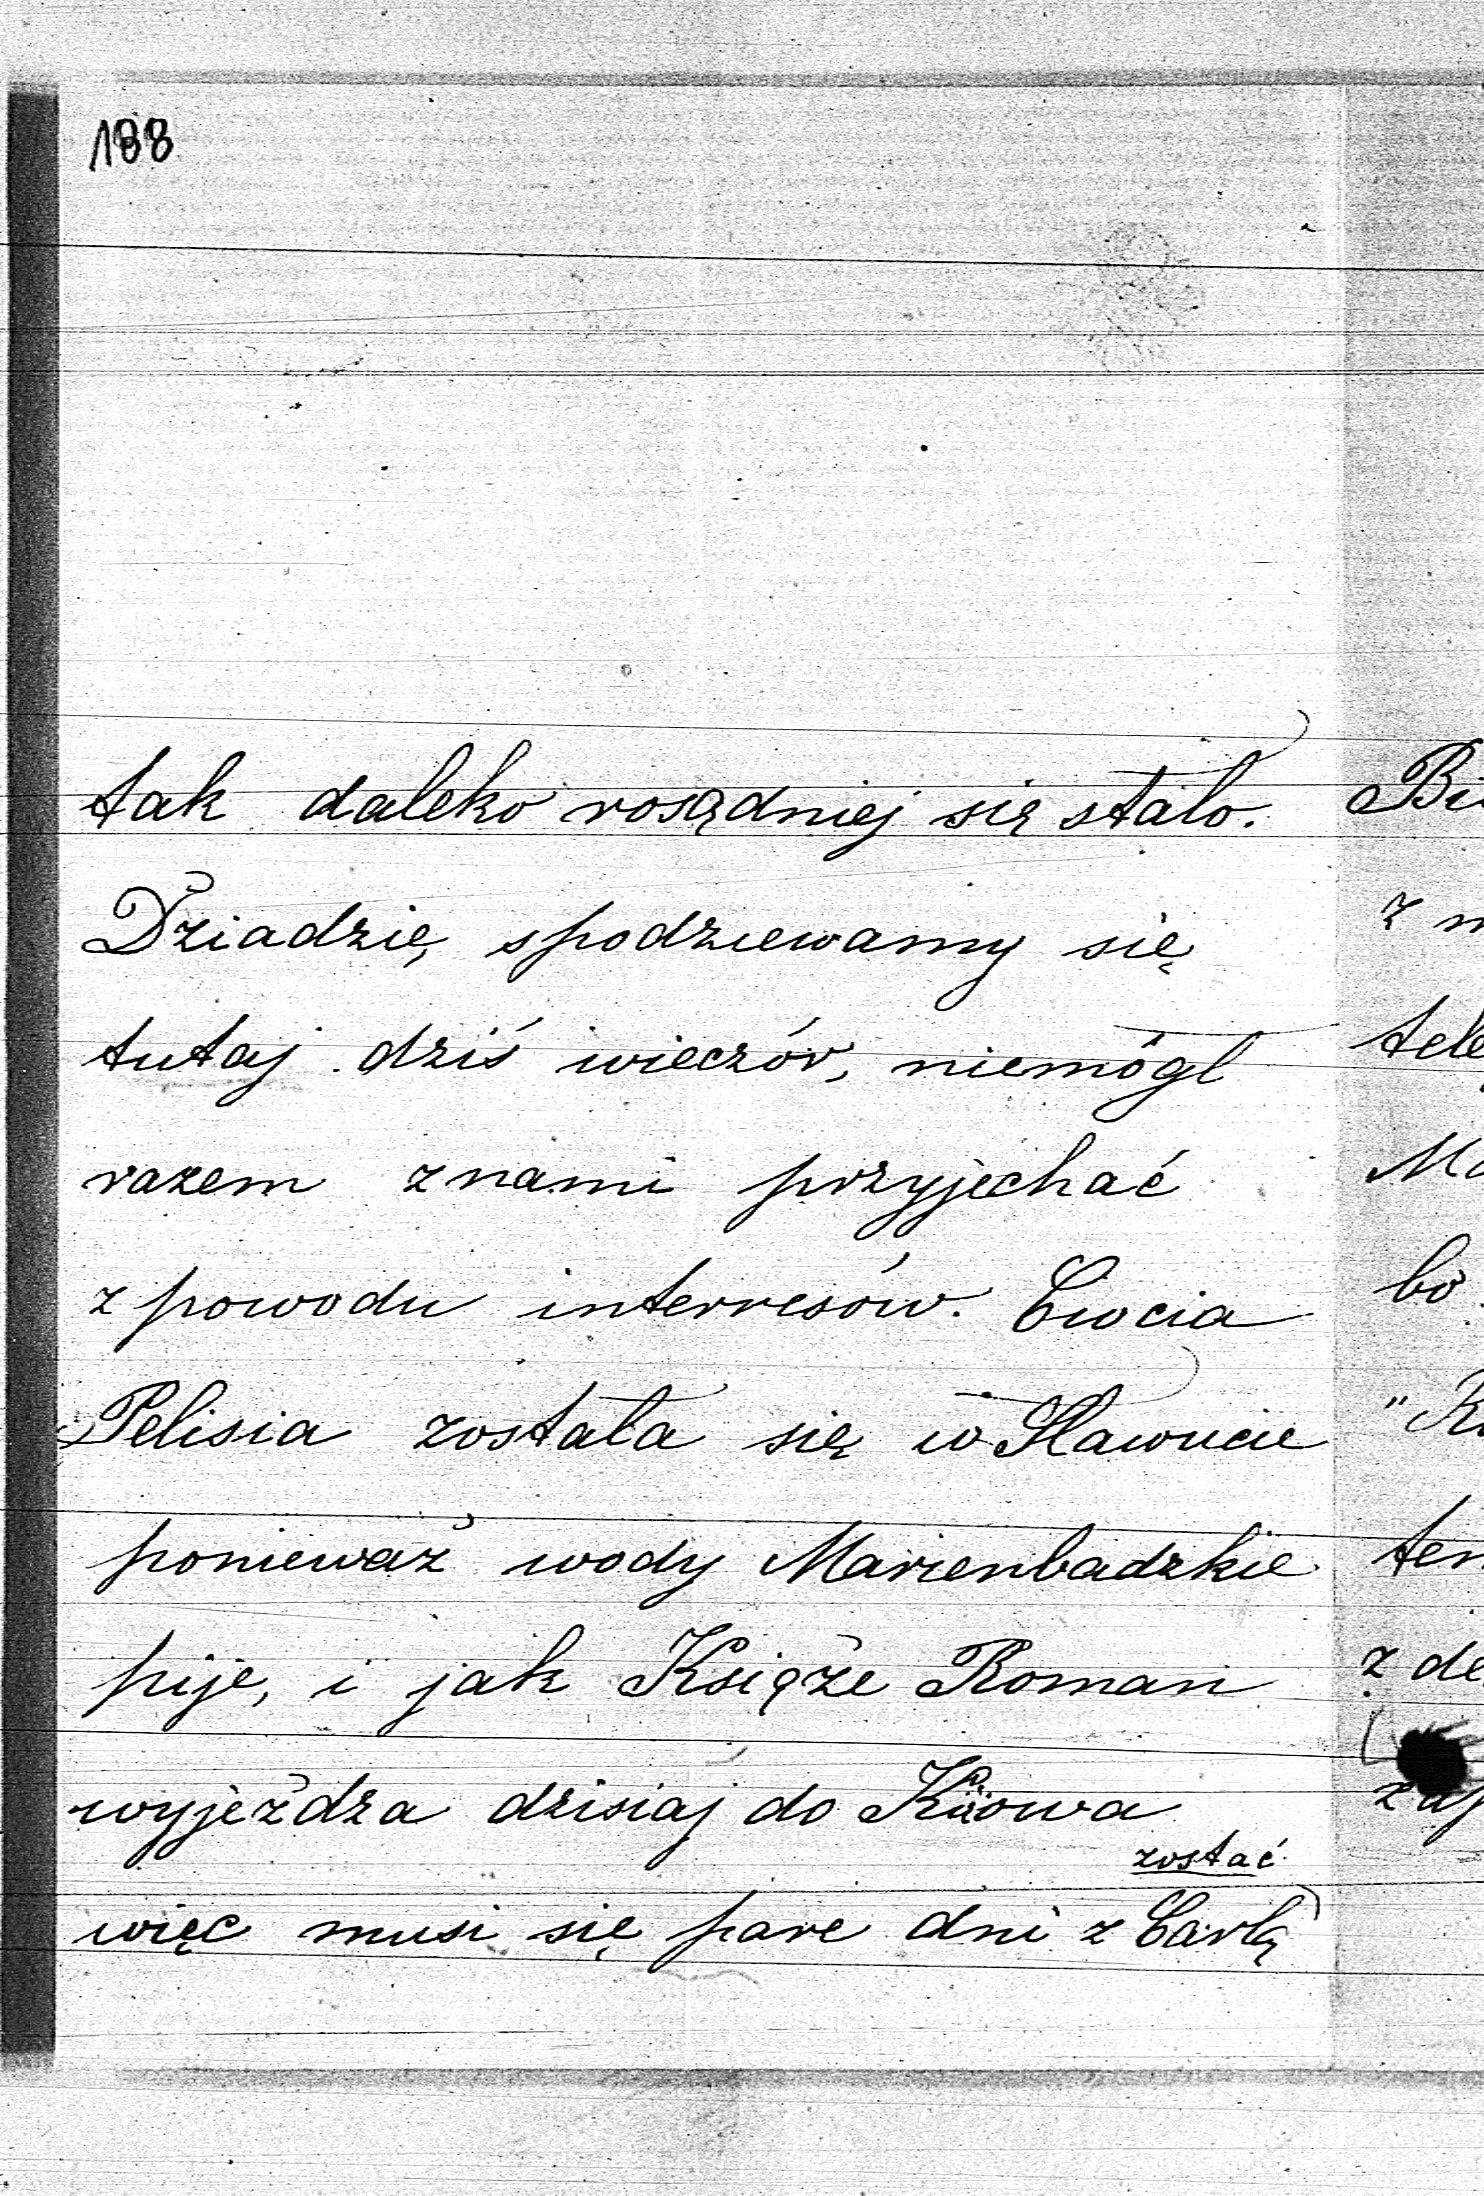 188
tak daleko rosądniej się stało.
Dziadzię, spodziewamy się
tutaj dziś wieczór, niemógł
razem znami przyjechać
z powodu interresów. Ciocia
Pelisia została się w Sławucie
ponieważ wody Marienbadzkie
pije, i jak Książe Roman
wyjeżdża dzisiaj do
zostać
więc musi się pare dni z Carlą
Bi
z m
tele
Ma
bo
"R
ten
z de